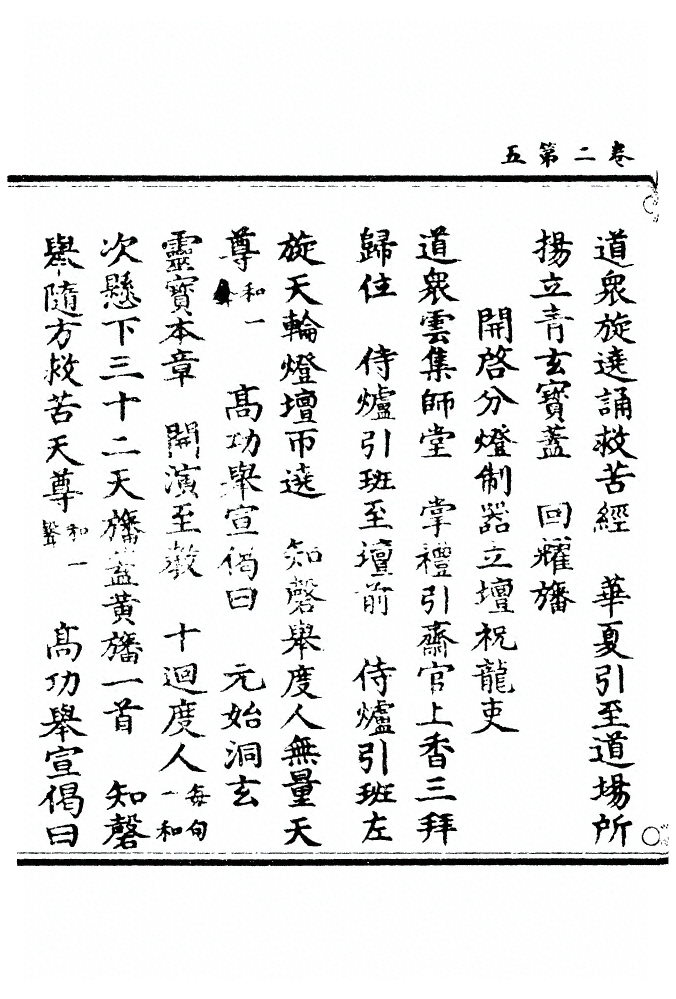 卷二第五
道衆旋遶誦救苦經　華夏引至道場所
揚立青玄寳蓋　回耀旛
開啓分燈制器立壇祝龍吏
道衆雲集師堂　掌禮引齋官上香三拜
歸住　侍爐引班至壇前　侍爐引班左
旋天輪燈壇帀遶　知磬舉度人無量天
尊和一　高功舉宣偈曰　元始洞玄
靈寳本章　開演至教　十迴度人每句一和
次懸下三十二天旛蓋黃旛一首　知磬
舉隨方救苦天尊和一聲　高功舉宣偈曰